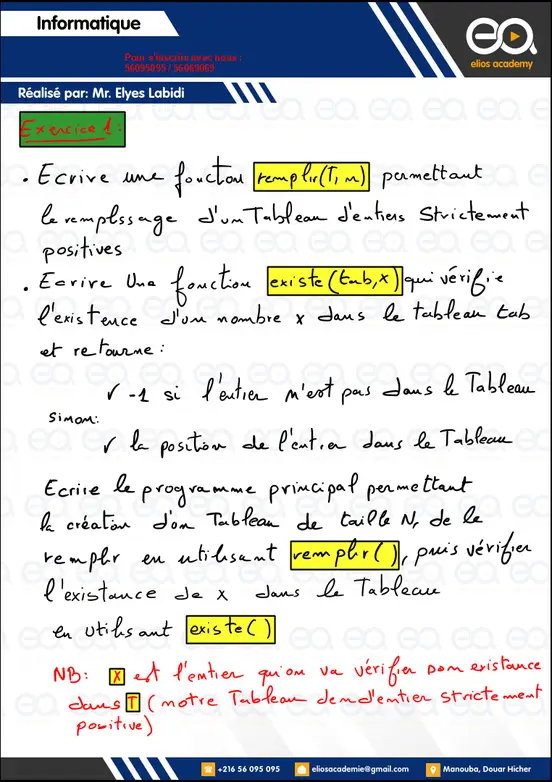 Informatique
Pour s'inscrire avec nous :
56095095 / 56069069
elios academy
Réalisé par: Mr. Elyes Labidi
Exercice 1:
. Ecrive une foncton remplir(T, n) permettant
le remplssage d'un Tableau d'entiers Strictement
positives
. Ecrive Une fonction existe(tab,x) qui vérifie
l'existence d'un nombre x dans le tableau tab
et retourne :
✓ -1 si l'entier n'est pas dans le Tableau
sinon:
✓ la position de l'entier dans le Tableau
Ecrire le programme principal permettant
la création d'on Tableau de taille N, de le
remplir en utilisant remplir(), puis vérifier
l'existance de x dans le Tableau
en utilisant existe()
NB: X est l'entier qu'on va vérifier son existance
dans T (notre Tableau d'entier strictement
positive)
+216 56 095 095
eliosacademie@gmail.com
Manouba, Douar Hicher